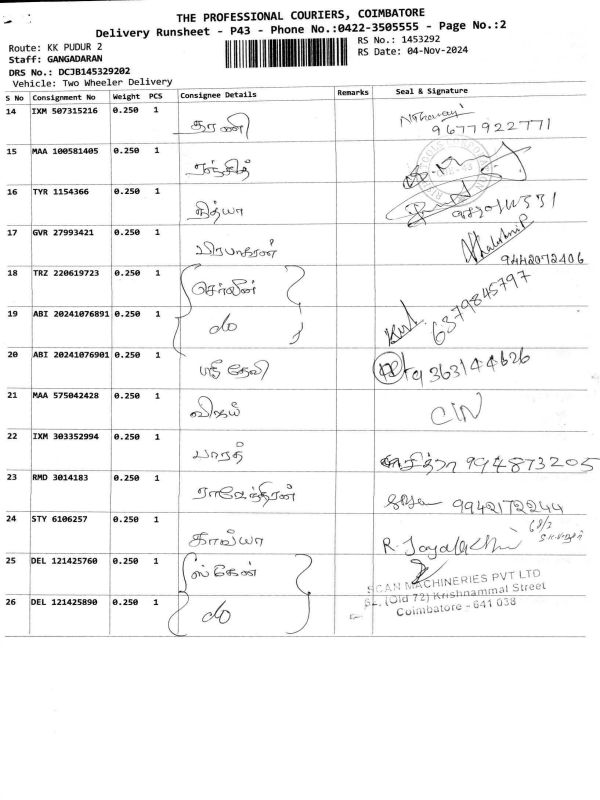 THE PROFESSIONAL COURIERS, COIMBATORE
Delivery Runsheet - P43 - Phone No.:0422-3505555 - Page No.:2
Route: KK PUDUR 2
RS No.: 1453292
Staff: GANGADARAN
RS Date: 04-Nov-2024
DRS No.: DCJB145329202
Vehicle: Two Wheeler Delivery
S No Consignment No Weight PCS Consignee Details Remarks Seal & Signature
14 IXM 507315216 0.250 1 தரணி 9677922771
15 MAA 100581405 0.250 1 ரஞ்சித்
16 TYR 1154366 0.250 1 நித்யா
17 GVR 27993421 0.250 1 பிரபாகரன் 9442072406
18 TRZ 220619723 0.250 1 செர்லின்
19 ABI 20241076891 0.250 1 do 6379845797
20 ABI 20241076901 0.250 1 ஸ்ரீ தேவி 9363144626
21 MAA 575042428 0.250 1 விஜய் CIN
22 IXM 303352994 0.250 1 பாரத் 994873205
23 RMD 3014183 0.250 1 ராவேந்திரன் 9942172244
24 STY 6106257 0.250 1 காவ்யா 68/3
25 DEL 121425760 0.250 1 ஸ்கேன்
SCAN MACHINERIES PVT LTD
(Old 72) Krishnammal Street
Coimbatore - 641 038
26 DEL 121425890 0.250 1 do